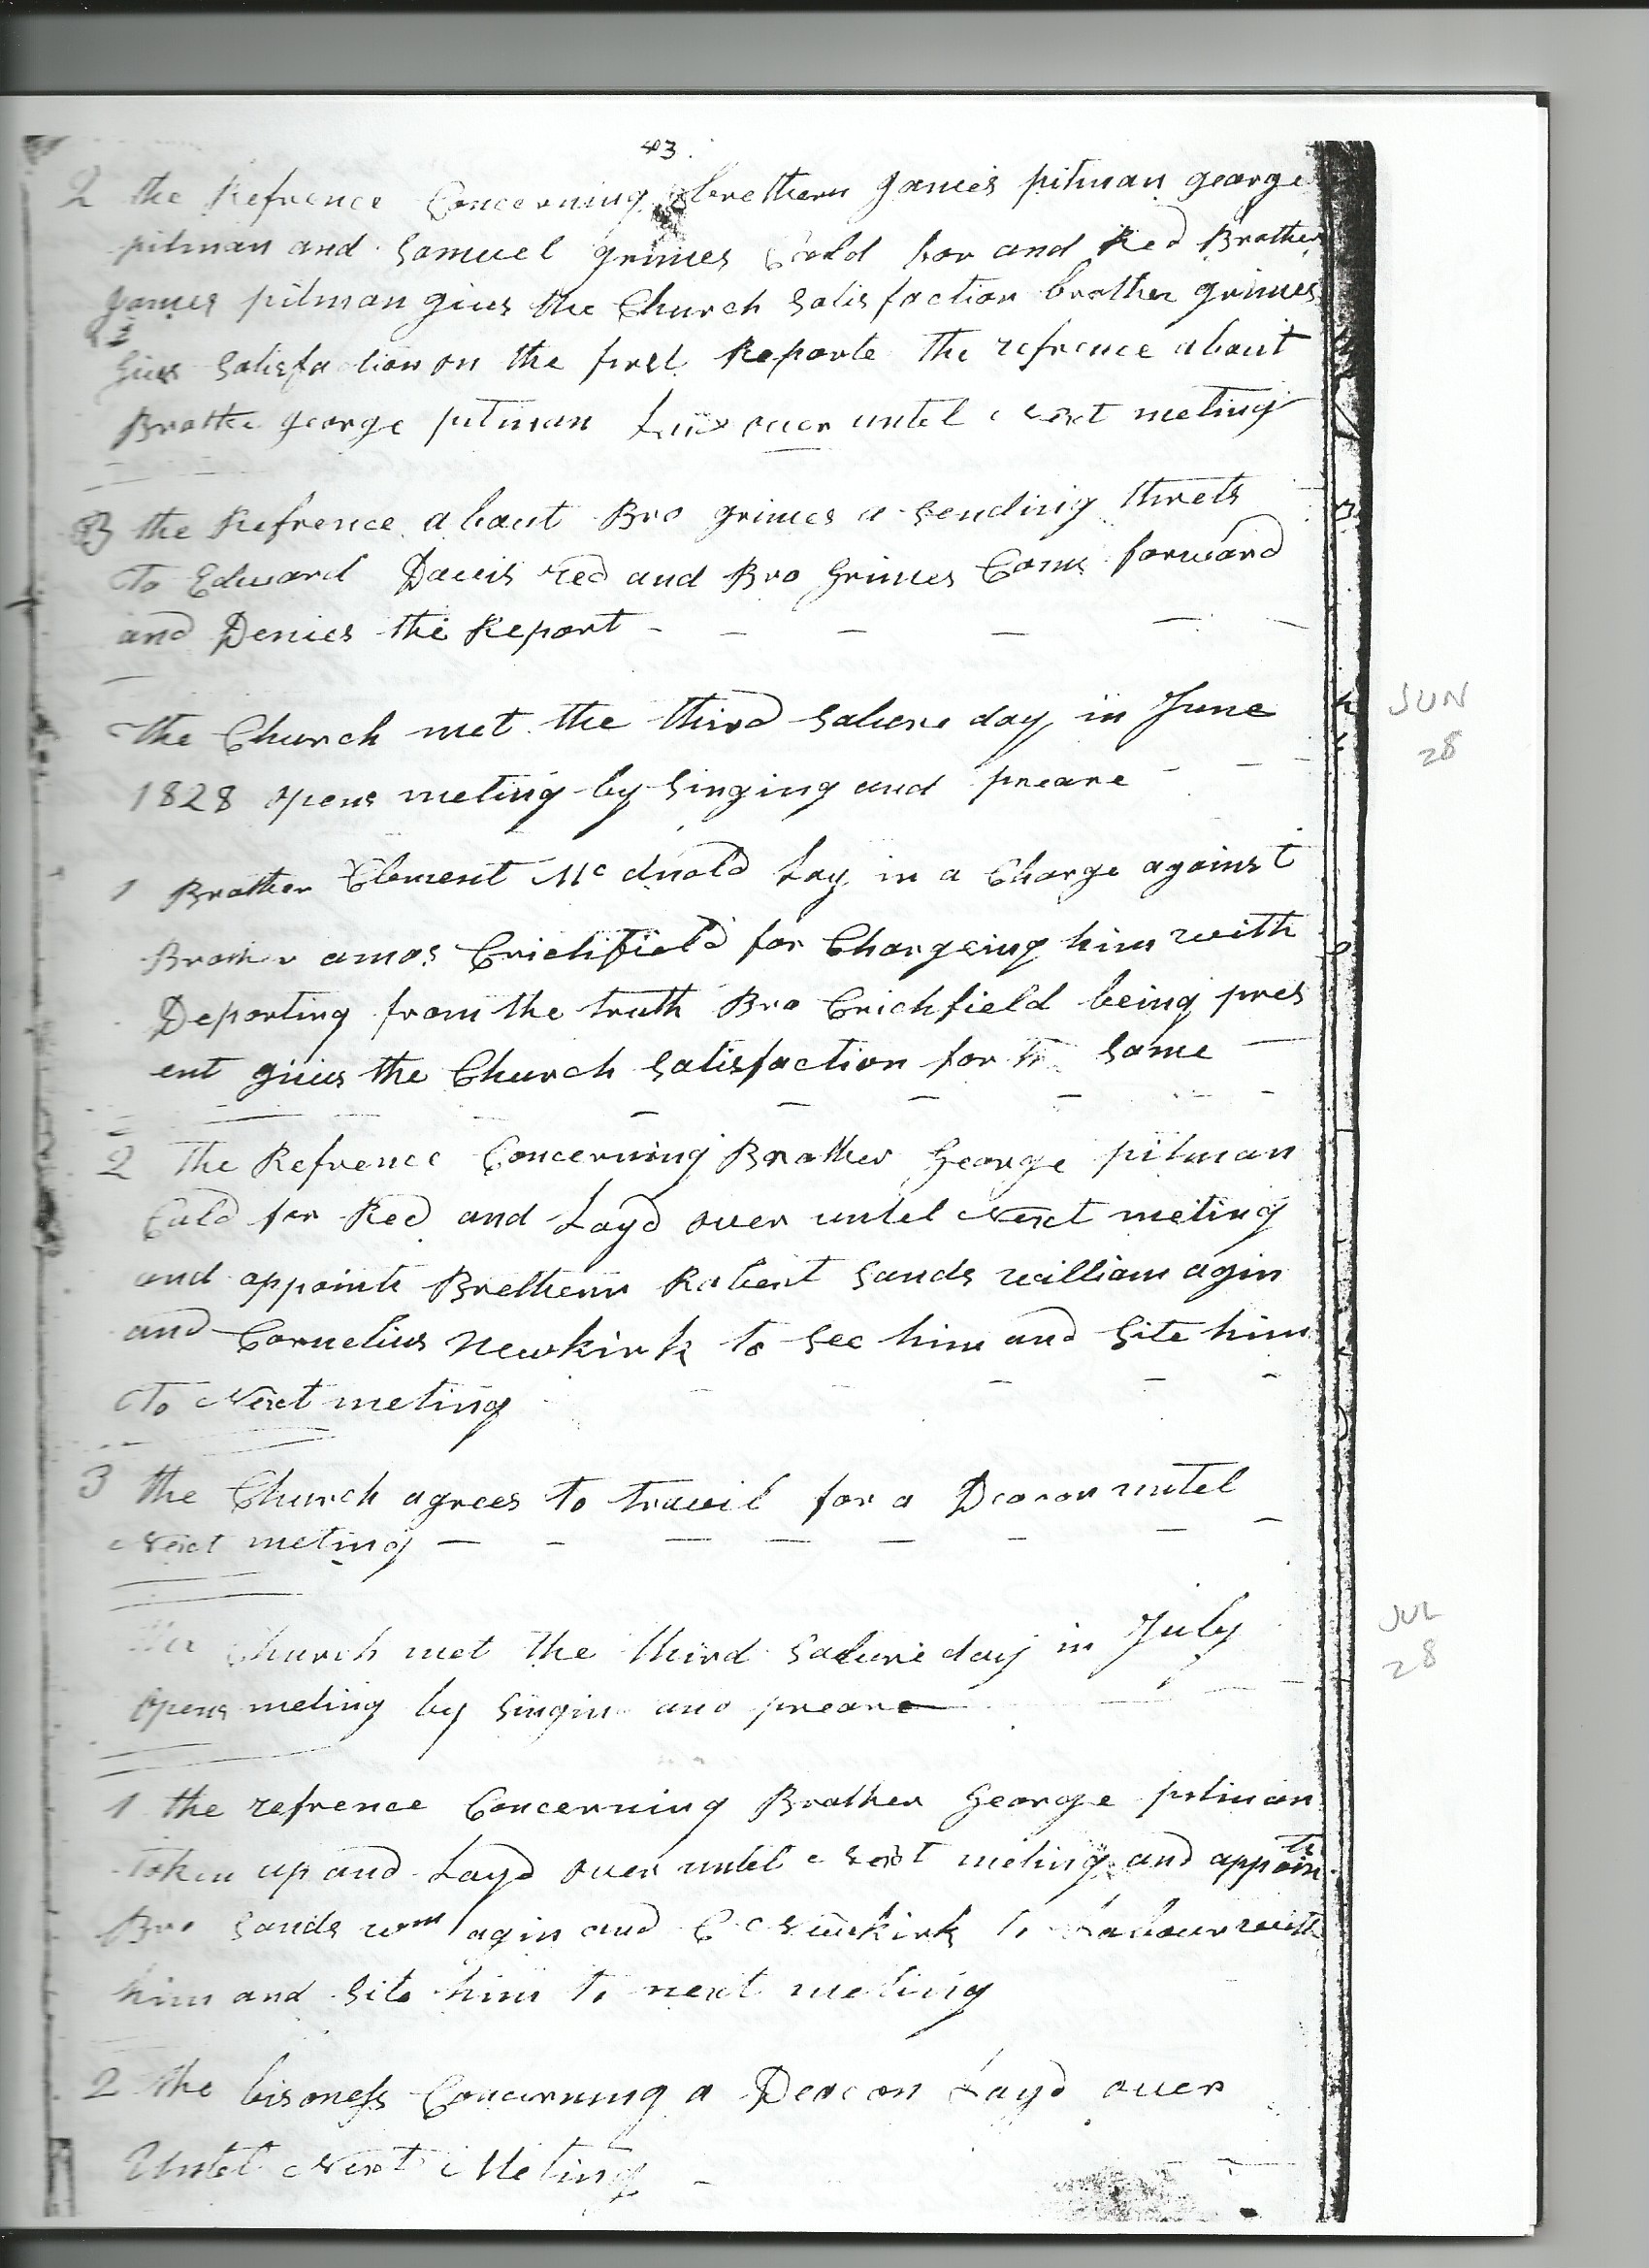 43.
2 the Refrence Concerning brethern James pitman george
pitman and Samuel grimes Cald for and Red Brother
James pitman gives the Church Satisfaction brother grimes
Gives Satisfaction on the first Reporte the refrence about
Brothe george pitman Lies over untel Next meting
3 the Refrence about Bro grimes a sending threts
To Edward Daveis red and Bro Grimes Coms forward
and Denies the Report
The Church met the third Satureday in June
JUN
28
1828 opens meting by Singing and preare
1 Brother Clement Mc dnold Lay in a Charge against
Brother amos Crichfield for Chargeing him with
Departing from the truth Bro Crichfield being pres
ent gives the Church Satisfaction for the Same
2 The Refrence Concerning Brother George pitman
Cald for Red and Layd over untel Next meting
and appoints Brethern Robert Sands william agin
and Cornelius Newkirk to See him and Site him
To Next meting
3 the Church agrees to traveil for a Deacon untel
Next meting
The Church met the third Satureday in July
JUL
28
Opens meting by Singin and preare
1 the refrence Concerning Brother George pitman
Taken up and Layd over untel Next meting and appoints
Bro Sands wm agin and C Newkirk to Labour with
him and Site him to next meting
2 the bisness Concerning a Deacon Layd over
Untel Next Meting